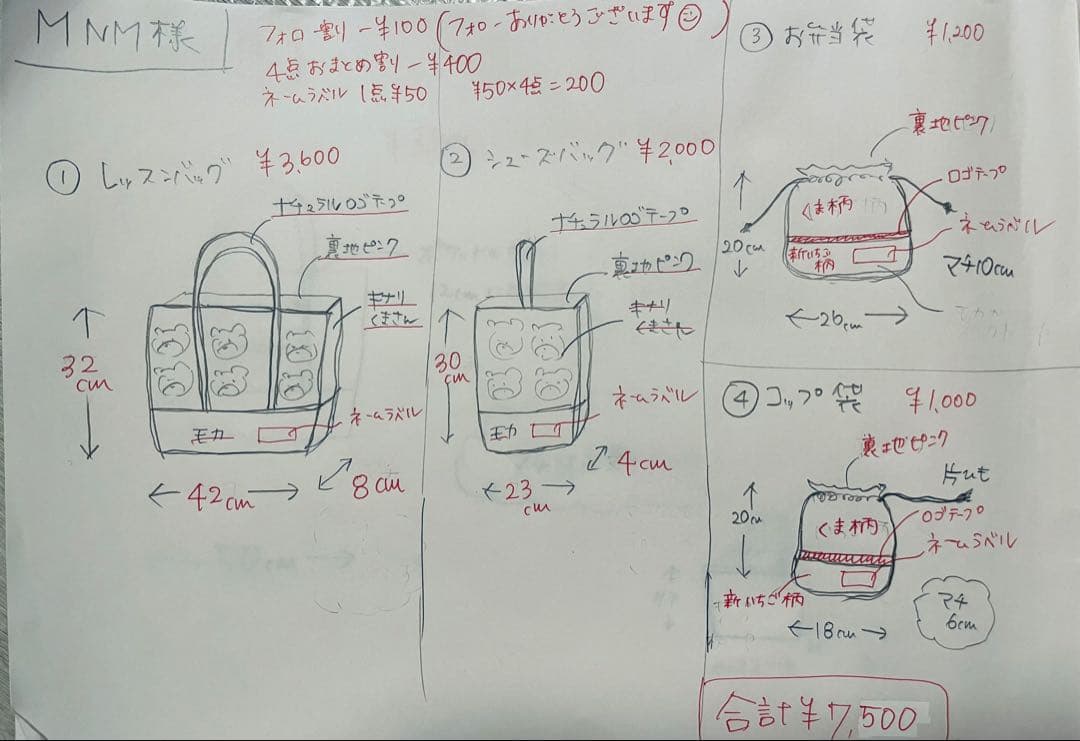 MNM様
フォロー割り -¥100 (フォローありがとうございます)
4点おまとめ割り -¥400
ネームラベル 1点¥50 ¥50×4点=200
① レッスンバッグ ¥3,600
ナチュラルロゴテープ
裏地ピンク
キナリ
くまさん
32
cm
モカ
ネームラベル
42cm
8cm
② シューズバッグ ¥2,000
ナチュラルロゴテープ
裏地ピンク
キナリ
くまさん
30
cm
モカ
ネームラベル
23
cm
4cm
③ お弁当袋 ¥1,200
裏地ピンク
ロゴテープ
くま柄
ネームラベル
20cm
新いちご
柄
マチ10cm
26cm
④ コップ袋 ¥1,000
裏地ピンク
片ひも
20cm
くま柄
ロゴテープ
ネームラベル
新いちご柄
マチ
6cm
18cm
合計¥7,500